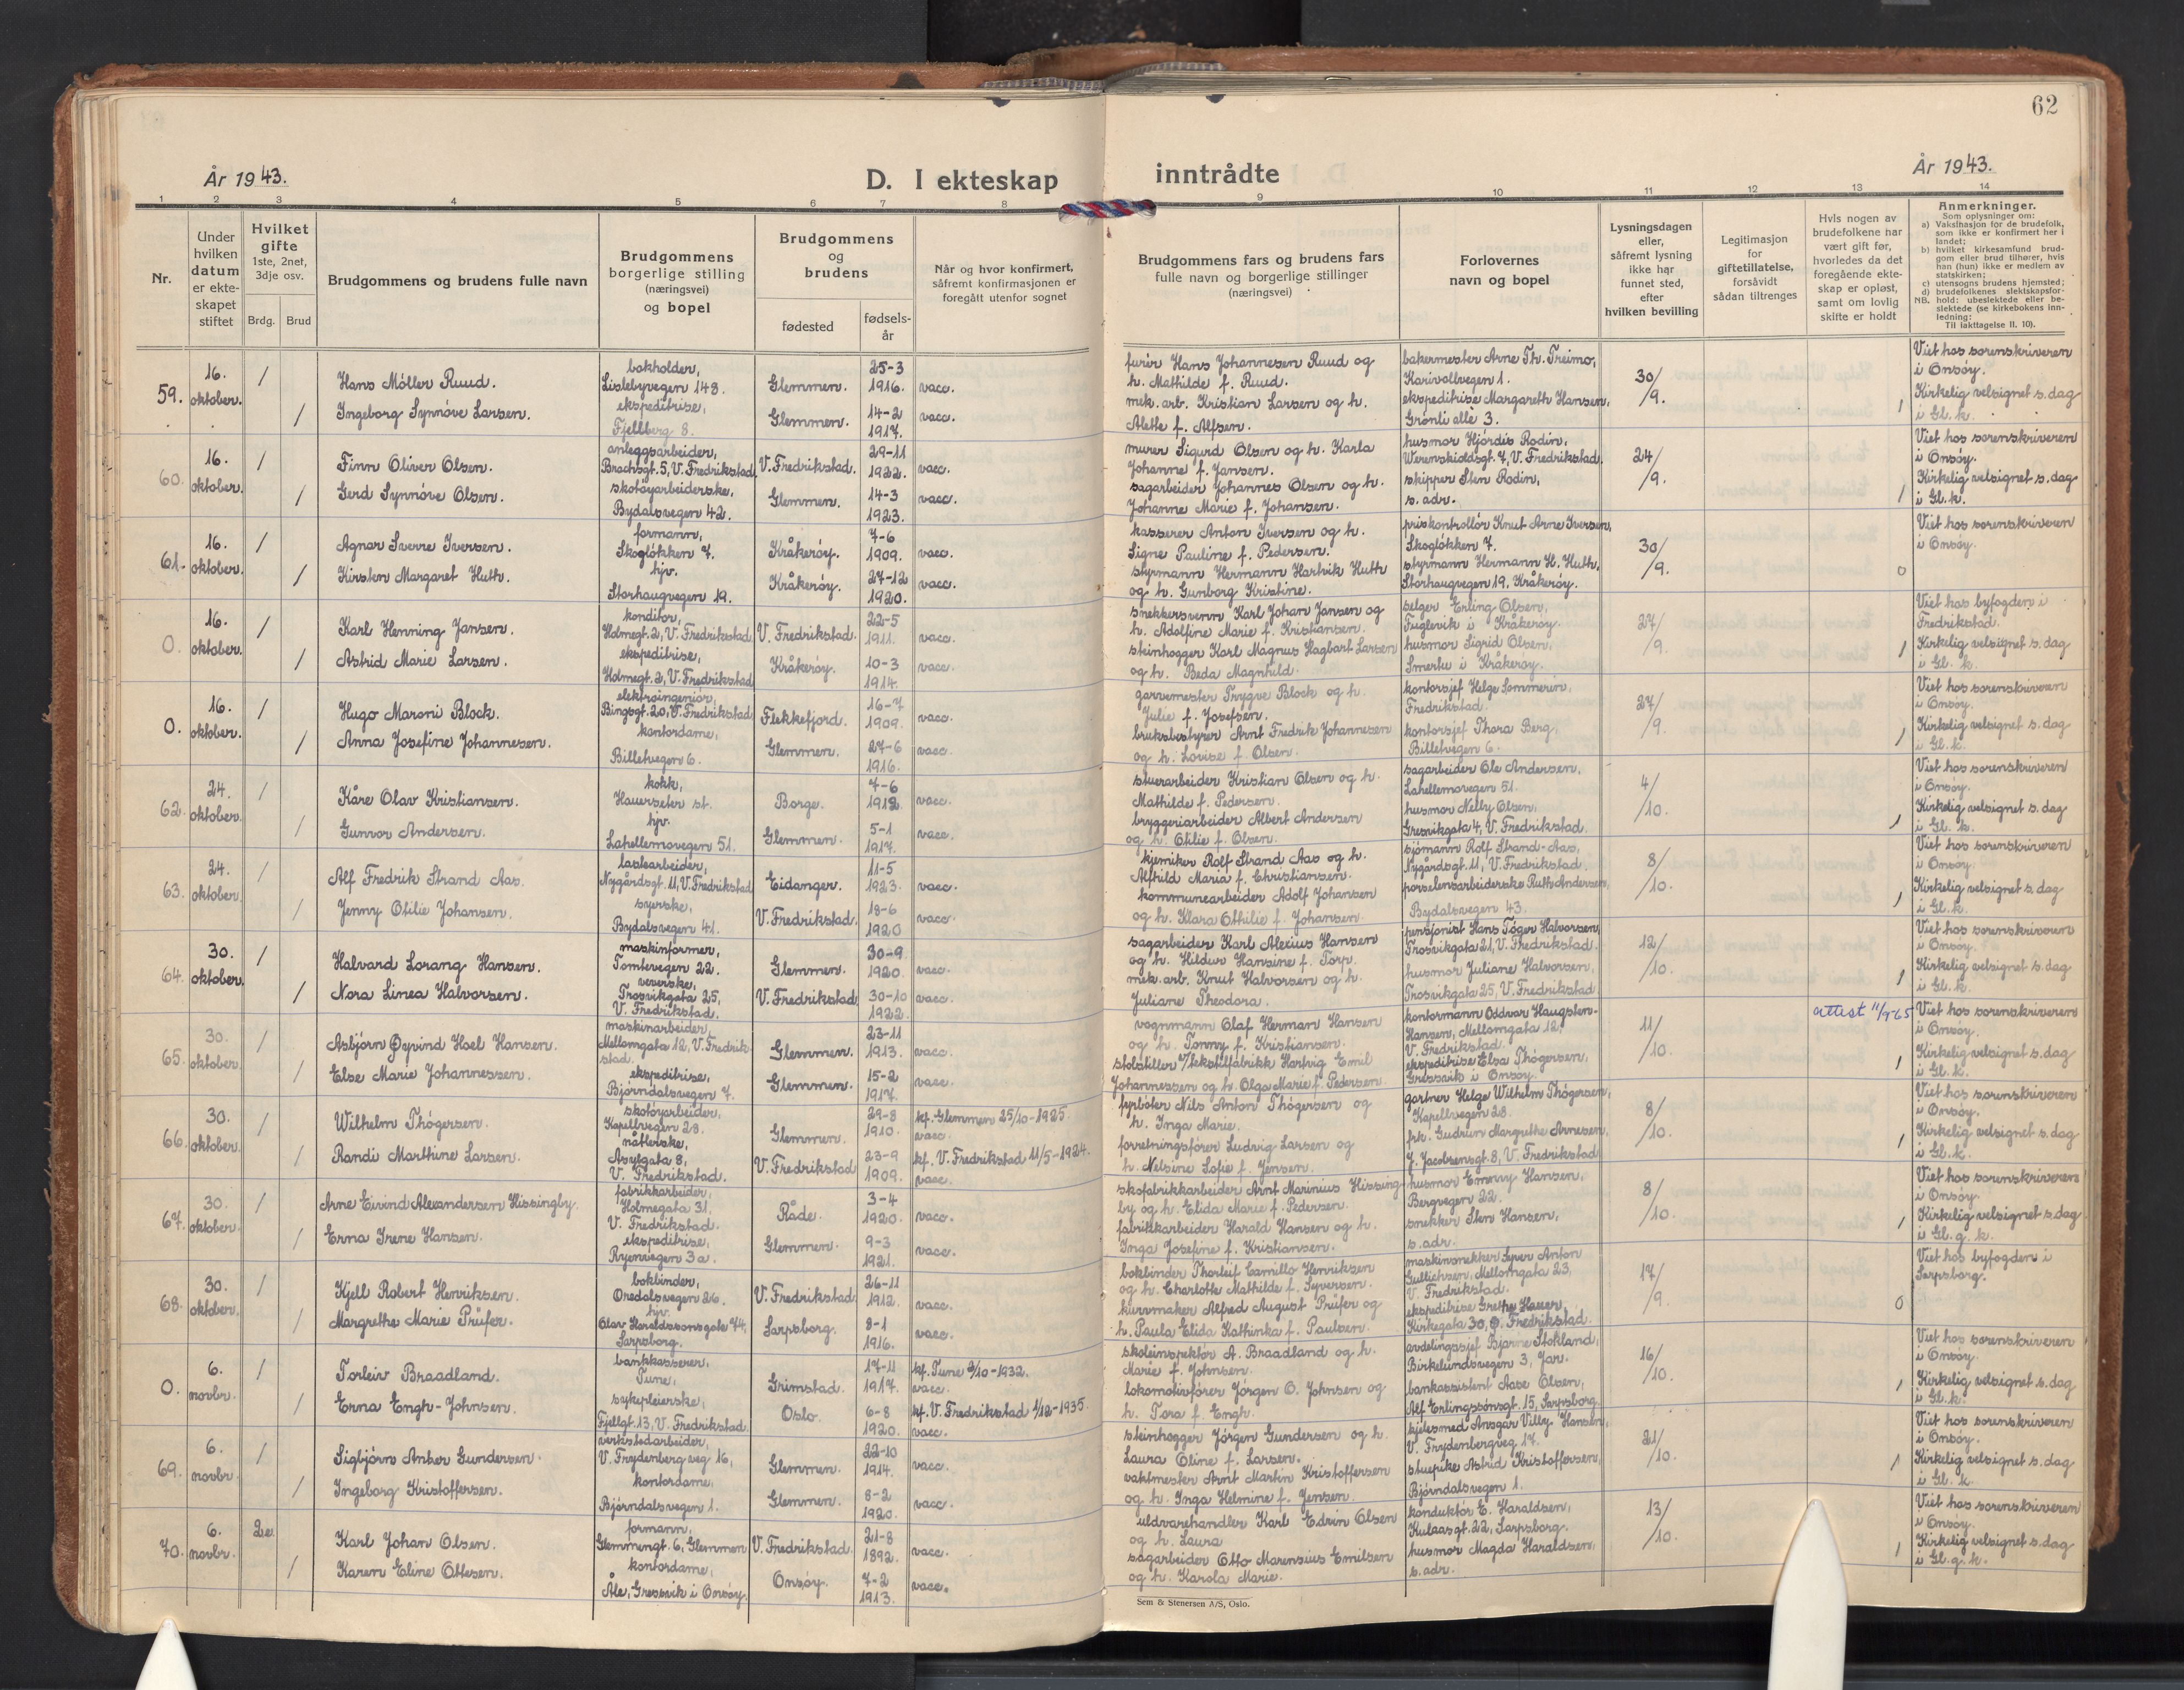 62
År 1943.
D. I ekteskap inntrådte
År 1943.
1 2 3 4 5 6 7 8 9 10 11 12 13 14
Nr.
Under hvilken datum er ekteskapet stiftet
Hvilket gifte 1ste, 2net, 3dje osv.
Brdg. Brud
Brudgommens og brudens fulle navn
Brudgommens borgerlige stilling (næringsvei) og bopel
Brudgommens og brudens
fødested
fødselsår
Når og hvor konfirmert, såfremt konfirmasjonen er foregått utenfor sognet
Brudgommens fars og brudens fars fulle navn og borgerlige stillinger (næringsvei)
Forlovernes navn og bopel
Lysningsdagen eller, såfremt lysning ikke har funnet sted, efter hvilken bevilling
Legitimasjon for giftetillatelse, forsåvidt sådan tiltrenges
Hvis nogen av brudefolkene har vært gift før, hvorledes da det foregående ekteskap er opløst, samt om lovlig skifte er holdt
Anmerkninger.
Som oplysninger om:
a) Vaksinasjon for de brudefolk, som ikke er konfirmert her i landet;
b) hvilket kirkesamfund brudgom eller brud tilhører, hvis han (hun) ikke er medlem av statskirken;
c) utensogns brudens hjemsted;
d) brudefolkenes slektskapsforhold: ubeslektede eller beslektede (se kirkebokens innledning:
NB. Til iakttagelse II. 10).
59. 16. oktober. 1 Hans Möller Ruud. bokholder, Lislebyvegen 143. Glemmen. 25-3 1916. vacc.
furér Hans Johannesen Ruud og h. Mathilde f. Ruud. bakermester Arne Th. Treimo, Karivollvegen 1. 30/9. Viet hos sorenskriveren i Onsøy.
1 Ingeborg Synnöve Larsen. ekspeditrise, Fjellberg 8. Glemmen. 14-2 1917. vacc.
mek. arb. Kristian Larsen og h. Alethe f. Alfsen. ekspeditrise Margareth Hansen, Grönli allè 3. 1 Kirkelig velsignet s. dag i Gl. k.
60. 16. oktober. 1 Finn Oliver Olsen. anleggsarbeider, Brochsgt. 5, V. Fredrikstad. V. Fredrikstad. 29-11 1922. vacc.
murer Sigurd Olsen og h. Karla Johanne f. Jansen. husmor Hjördis Rodin, Werenskioldsgt. 7, V. Fredrikstad. 24/9. Viet hos sorenskriveren i Onsøy.
1 Gerd Synnöve Olsen. skotöyarbeiderske, Bydalsvegen 42. Glemmen. 14-3 1923. vacc.
sagarbeider Johannes Olsen og h. Johanne Marie f. Johansen. skipper Sten Rodin, s. adr. 1 Kirkelig velsignet s. dag i Gl. k.
61. 16. oktober. 1 Agnar Sverre Iversen. formann, Skoglökken 7. Kråkeröy. 7-6 1909. vacc.
kasserer Anton Iversen og h. Signe Pauline f. Pedersen. priskontrollör Knut Arne Iversen, Skoglökken 7. 30/9. Viet hos sorenskriveren i Onsøy.
1 Kirsten Margaret Huth. hjv. Storhaugvegen 19. Kråkeröy. 27-12 1920. vacc.
styrmann Hermann Hartvik Huth og h. Gunborg Kristine. styrmann Hermann H. Huth, Storhaugvegen 19, Kråkeröy. 0
0. 16. oktober. 1 Karl Henning Jansen. konditor, Holmegt. 2, V. Fredrikstad. V. Fredrikstad. 22-5 1911. vacc.
snekkersvenn Karl Johan Jansen og h. Adolfine Marie f. Kristiansen. selger Erling Olsen, Fuglevik i Kråkeröy. 27/9. Viet hos byfogden i Fredrikstad.
1 Astrid Marie Larsen. ekspeditrise, Holmegt. 2, V. Fredrikstad Kråkeröy. 10-3 1914. vacc.
steinhogger Karl Magnus Hagbart Larsen og h. Beda Magnhild. husmor Sigrid Olsen, Smertu i Kråkeröy. 1 Kirkelig velsignet s. dag i Gl. k.
0. 16. oktober. 1 Hugo Maroni Block. elektroingeniör, Bingsgt. 20, V. Fredrikstad Flekkefjord. 16-7 1909. vacc.
garvemester Trygve Block og h. Julie f. Josefsen. kontorsjef Helge Sommerin, Fredrikstad. 27/9. Viet hos sorenskriveren i Onsøy.
1 Anna Josefine Johannesen. kontordame, Billetvegen 6. Glemmen. 27-6 1916. vacc.
bruksbestyrer Arnt Fredrik Johannesen og h. Lovise f. Olsen. kontorsjef Thora Berg, Billetvegen 6. 1 Kirkelig velsignet s. dag i Gl. k.
62. 24. oktober. 1 Kåre Olav Kristiansen. kokk, Hauerseter st. Borge. 7-6 1912. vacc.
stuerarbeider Kristian Olsen og h. Mathilde f. Pedersen. sagarbeider Ole Andersen, Lahellemovegen 51. 4/10. Viet hos sorenskriveren i Onsøy.
1 Gunvor Andersen. hjv. Lahellemovegen 51. Glemmen. 5-1 1917. vacc.
bryggeriarbeider Albert Andersen og h. Otilie f. Olsen. husmor Nelly Olsen, Gresvikgata 4, V. Fredrikstad. 1 Kirkelig velsignet s. dag i Gl. k.
63. 24. oktober. 1 Alf Fredrik Strand Aas. lastearbeider, Nygårdsgt. 11, V. Fredrikstad Eidanger. 11-5 1923. vacc.
kjemiker Rolf Strand Aas og h. Alfhild Maria f. Christiansen. sjömann Rolf Strand-Aas, Nygårdsgt. 11, V. Fredrikstad. 8/10. Viet hos sorenskriveren i Onsøy.
1 Jenny Otilie Johansen. syerske, Bydalsvegen 41. V. Fredrikstad. 18-6 1920 vacc.
kommunearbeider Adolf Johansen og h. Klara Othilie f. Johansen. porselensarbeiderske Ruth Andersen, Bydalsvegen 43. 1 Kirkelig velsignet s. dag i Gl. k.
64. 30. oktober. 1 Halvard Lorang Hansen. maskinformer, Tomtevegen 22. Glemmen. 30-9 1920. vacc.
sagarbeider Karl Alexius Hansen og h. Hildur Hansine f. Torp. pensjonist Hans Töger Halvorsen, Trosvikgata 21, V. Fredrikstad. 12/10. Viet hos sorenskriveren i Onsøy.
1 Nora Linea Halvorsen. veverske, Trosvikgata 25, V. Fredrikstad. V. Fredrikstad 30-10 1922. vacc.
mek. arb. Knut Halvorsen og h. Juliane Theodora. husmor Juliane Halvorsen, Trosvikgata 25, V. Fredrikstad. 1 Kirkelig velsignet s. dag i Gl. k.
65. 30. oktober. 1 Asbjörn Øyvind Hoel Hansen. maskinarbeider, Mellomgata 12, V. Fredrikstad. Glemmen. 23-11 1913. vacc.
vognmann Olaf Herman Hansen og h. Tonny f. Kristiansen. kontormann Oddvar Haugsten-Hansen, Mellomgata 12, V. Fredrikstad. 11/10. attest 11/9-65 Viet hos sorenskriveren i Onsøy.
1 Else Marie Johannessen. ekspeditrise, Bjørndalsvegen 7. Glemmen. 15-2 1917. vacc.
stolstiller v/tekstilfabrikk Hartvig Emil Johannessen og h. Olga Marie f. Pedersen. ekspeditrise Elsa Thögersen, Gressvik i Onsøy. 1 Kirkelig velsignet s. dag i Gl. k.
66. 30. oktober. 1 Wilhelm Thögersen. skotöyarbeider, Kapellvegen 28. Glemmen. 29-8 1910. kf. Glemmen 25/10-1925. vacc.
fyrböter Nils Anton Thögersen og h. Inga Marie. gartner Helge Wilhelm Thögersen, Kapellvegen 28. 8/10. Viet hos sorenskriveren i Onsøy.
1 Randi Marthine Larsen. nåtlerske, Asylgata 8, V. Fredrikstad. V. Fredrikstad 23-9 1909. kf. V. Fredrikstad 11/5-1924. vacc.
forretningsförer Ludvig Larsen og h. Nelsine Sofie f. Jensen. frk. Gudrun Margrethe Arnesen, J. Jacobsensgt. 8, V. Fredrikstad 1 Kirkelig velsignet s. dag i Gl. k.
67. 30. oktober. 1 Arne Eivind Alexandersen Hissingby. fabrikkarbeider, Holmegata 31, V. Fredrikstad. Råde. 3-4 1920. vacc.
skofabrikkarbeider Arnt Marinius Hissingby og h. Elida Marie f. Pedersen. husmor Emmy Hansen, Bergvegen 22. 8/10. Viet hos sorenskriveren i Onsøy.
1 Erna Irene Hansen. ekspeditrise, Ryenvegen 3a. Glemmen. 9-3 1921. vacc.
fabrikkarbeider Harald Hansen og h. Inga Josefine f. Kristiansen. snekker Sten Hansen, s. adr. 1 Kirkelig velsignet s. dag i Gl. g. k.
68. 30. oktober. 1 Kjell Robert Henriksen. bokbinder, Oredalsvegen 26. V. Fredrikstad 26-11 1912. vacc.
bokbinder Thorleif Camillo Henriksen og h. Charlotte Mathilde f. Syversen. maskinsnekker Syver Anton Gullichsen, Mellomgata 23, V. Fredrikstad. 17/9. Viet hos byfogden i Sarpsborg.
1 Margrethe Marie Prüfer. hjv. Olav Haraldssonsgate 74, Sarpsborg. Sarpsborg. 8-1 1916. vacc.
kurvmaker Alfred August Prüfer og h. Paula Elida Kathinka f. Paulsen. ekspeditrise Grethe Hauer, Kirkegata 30, Ø. Fredrikstad. 0
0. 6. novbr. 1 Torleiv Braadland. bankkasserer, Tune, Grimstad. 17-11 1917. kf. Tune 2/10-1932. vacc.
skoleinspektör A. Braadland og h. Marie f. Johnsen. avdelingssjef Bjarne Stokland, Birkelundsvegen 3, Jar. 16/10. Viet hos sorenskriveren i Onsøy.
1 Erna Engh-Johnsen. sykepleierske, Fjellgt. 13, V. Fredrikstad Oslo. 6-8 1920. kf. V. Fredrikstad 1/12-1935. vacc.
lokomotivförer Jörgen O. Johnsen og h. Tora f. Engh. bankassistent Aase Olsen, Alf Erlingssönsgt. 15, Sarpsborg. 1 Kirkelig velsignet s. dag i Gl. k.
69. 6. novbr. 1 Sigbjörn Anker Gundersen. verkstedarbeider, V. Frydenbergveg 16, Glemmen. 22-10 1914. vacc.
steinhogger Jörgen Gundersen og h. Laura Oline f. Larsen. kjelesmed Ansgar Villy Hansen, V. Frydenbergveg 17. 21/10. Viet hos sorenskriveren i Onsøy.
1 Ingeborg Kristoffersen. kontordame, Bjørndalsvegen 1. Glemmen. 8-2 1920. vacc.
vaktmester Arnt Martin Kristoffersen og h. Inga Helmine f. Jensen. stuepike Astrid Kristoffersen, Bjørndalsvegen 1. 1 Kirkelig velsignet s. dag i Gl. k.
70. 6. novbr. 2e. Karl Johan Olsen. formann, Glemmengt. 6, Glemmen V. Fredrikstad. 21-8 1892. vacc.
uldvarehandler Karl Edvin Olsen og h. Laura konduktör E. Haraldsen, Kulaasgt. 22, Sarpsborg. 13/10. Viet hos sorenskriveren i Onsøy.
1 Karen Eline Ottesen. kontordame, Åle, Gressvik i Onsøy. Onsøy. 7-2 1913. vacc.
sagarbeider Otto Marensius Emilsen og h. Karola Marie. husmor Magda Haraldsen, s. adr. 1 Kirkelig velsignet s. dag i Gl. g. k.
Sem & Stenersen A/S, Oslo.